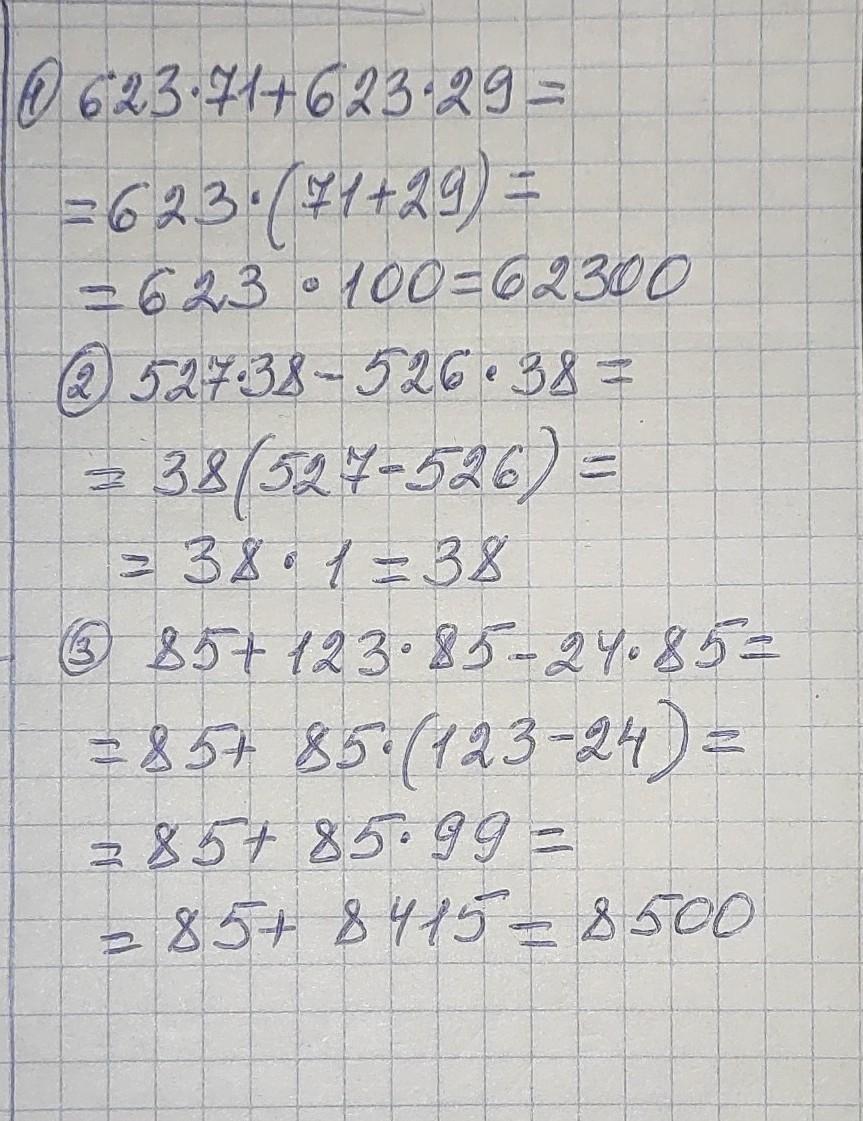 ① 623·71+623·29=
=623·(71+29)=
=623·100=62300
② 527·38-526·38=
=38(527-526)=
=38·1=38
③ 85+123·85-24·85=
=85+85·(123-24)=
=85+85·99=
=85+8415=8500